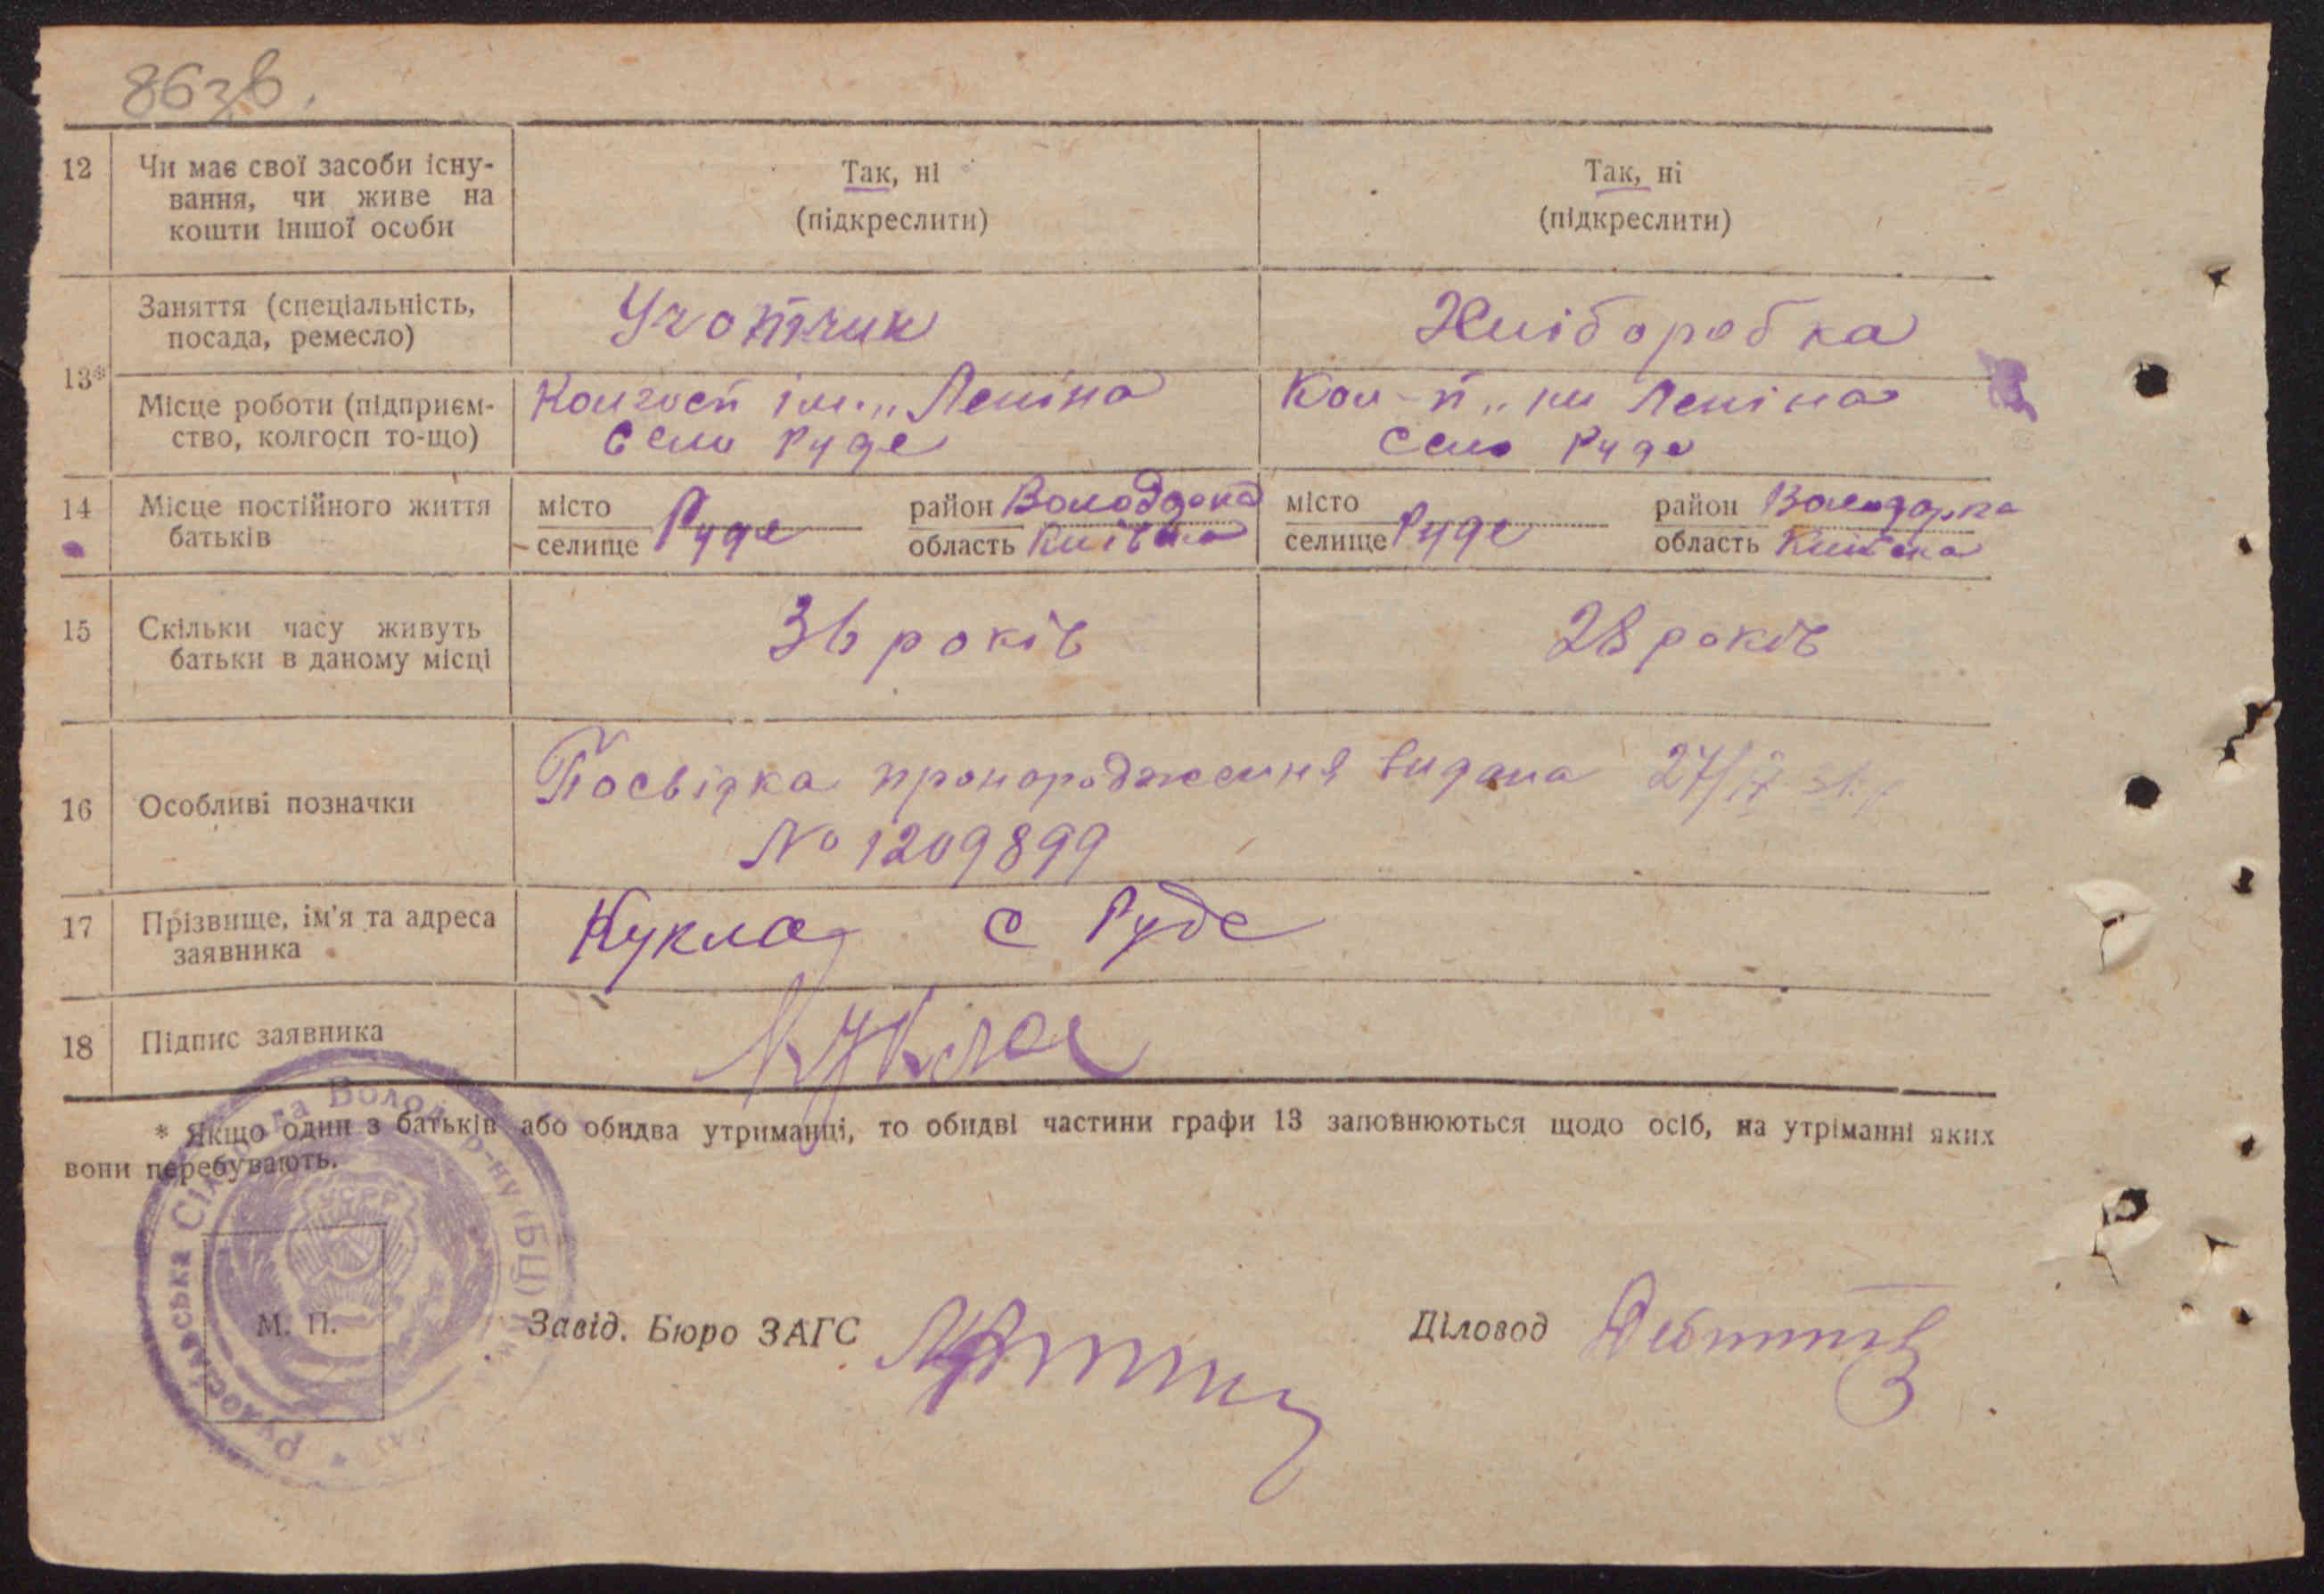 86зв.
12 Чи має свої засоби існу- Так, ні Так, ні
вання, чи живе на
кошти іншої особи (підкреслити) (підкреслити)
Заняття (спеціальність, Учотчик Хліборобка
посада, ремесло)
13*
Місце роботи (підприєм- Колгосп ім. „Леніна Кол-п „ім Леніна
ство, колгосп то-що) село Руде село Руде
14 Місце постійного життя місто район місто район
батьків селище Руде область Київська селище Руде область Київська
15 Скільки часу живуть 36 років 28 років
батьки в даному місці
Посвідка про народження видана 27/
16 Особливі позначки
№ 1209899
17 Прізвище, ім'я та адреса Кукла с Руде
заявника
18 Підпис заявника Кукла
* Якщо один з батьків або обидва утриманці, то обидві частини графи 13 заповнюються щодо осіб, на утріманні яких
вони перебувають.
Рудосілвська Сільрада Волод. р-ну (БЦ)
УСРР
М. П.
Завід. Бюро ЗАГС
Діловод